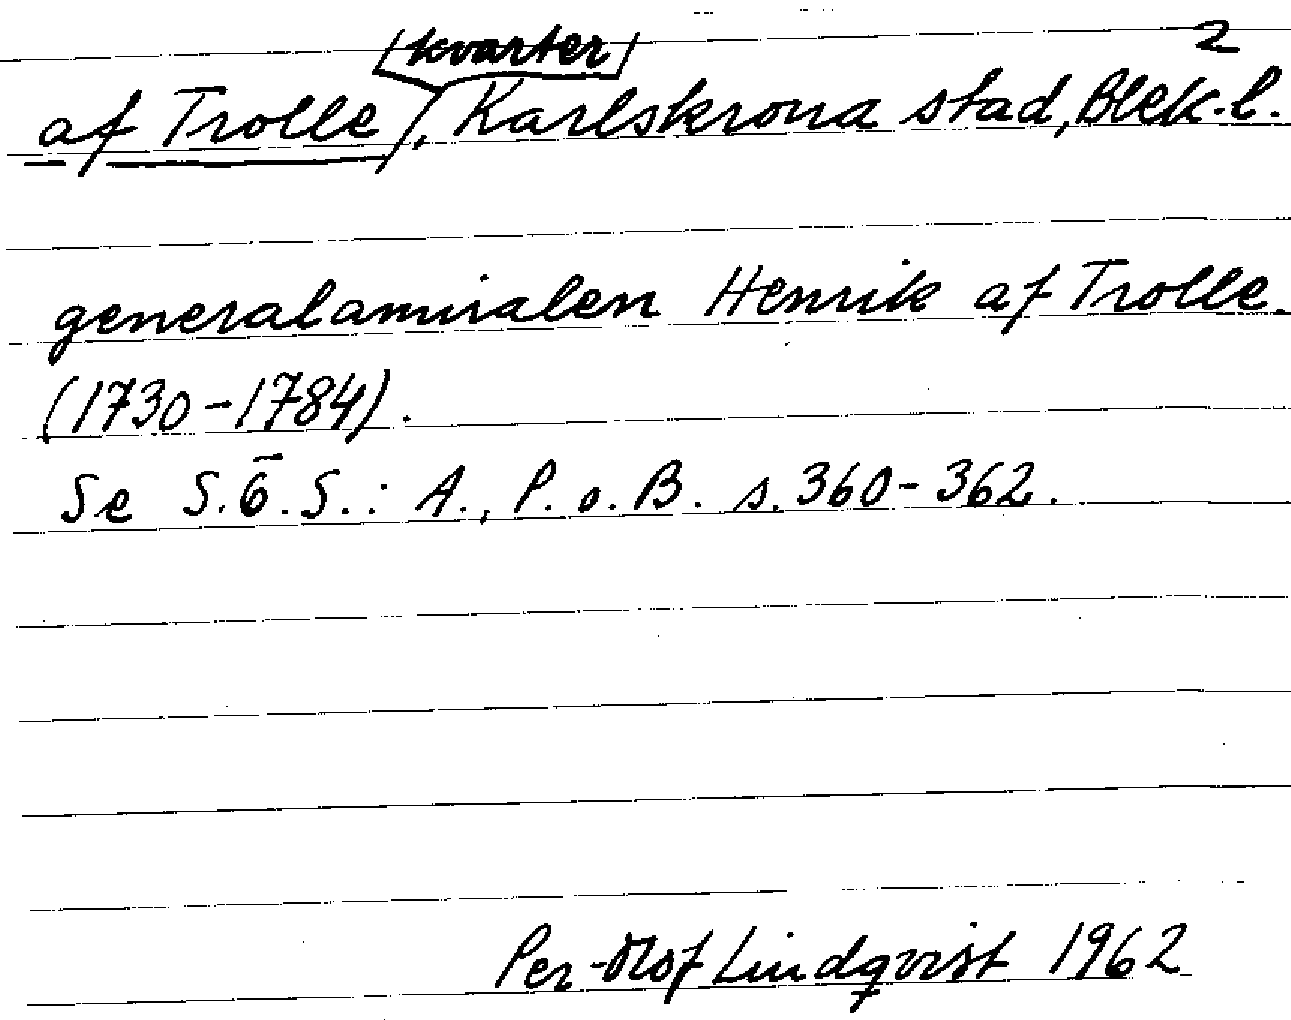 /kvarter/ 2
af Trolle/, Karlskrona stad, Blek. l.
generalamiralen Henrik af Trolle.
(1730-1784).
Se S.Ö.S.: A., P. o. B. s. 360-362.
Per-Olof Lindqvist 1962